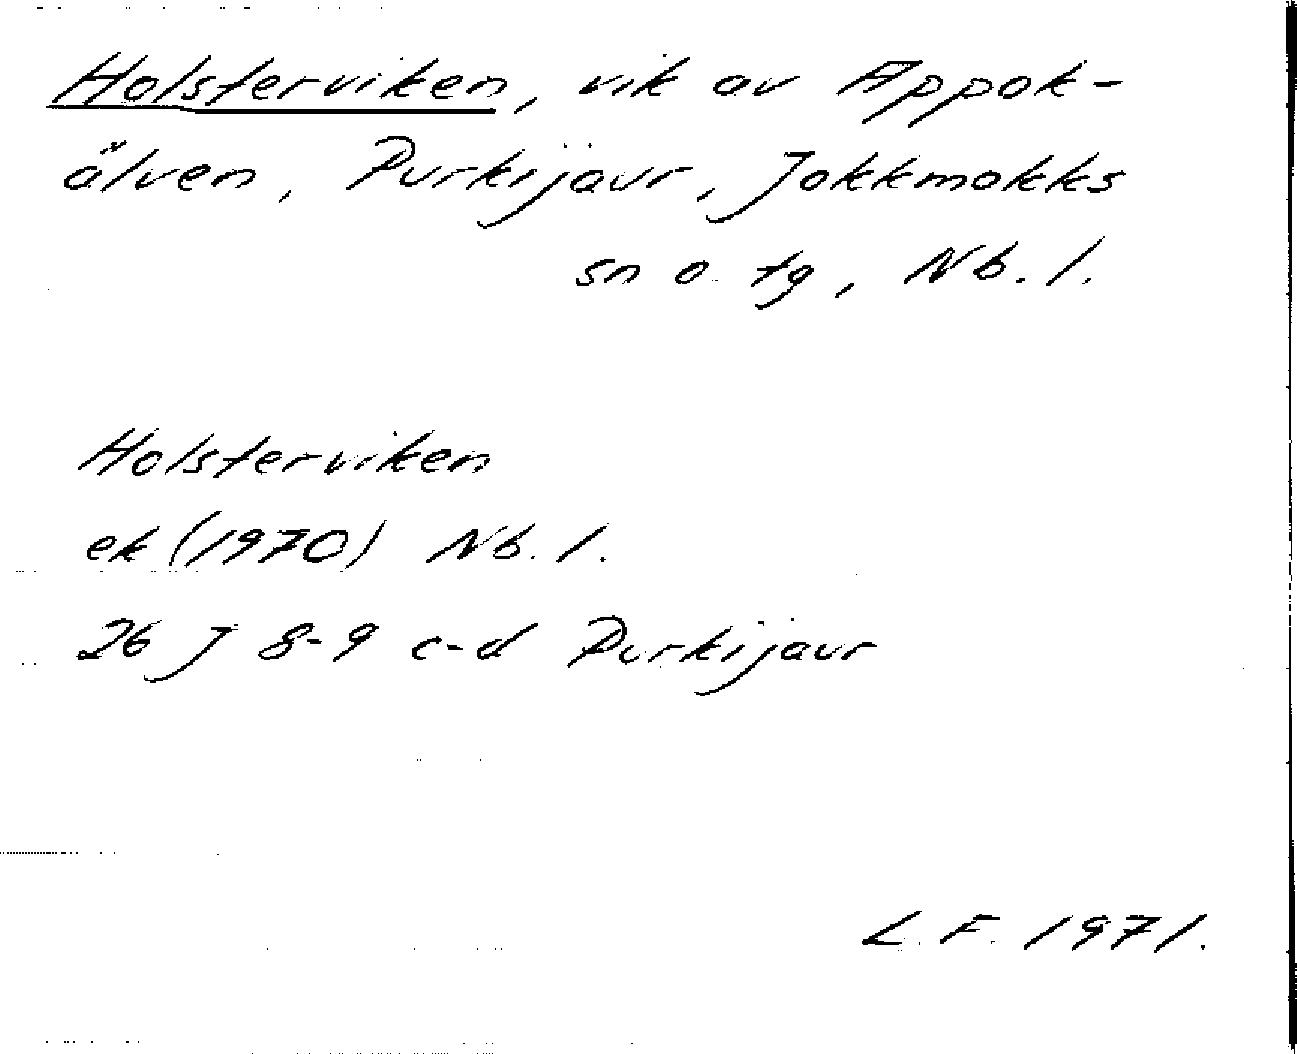 Holsterviken, vik av Appok-
älven, Purkijaur, Jokkmokks
sn o. tg, Nb. l.
Holsterviken
ek (1970) Nb. l.
26 J 8-9 c-d Purkijaur
L. F. 1971.